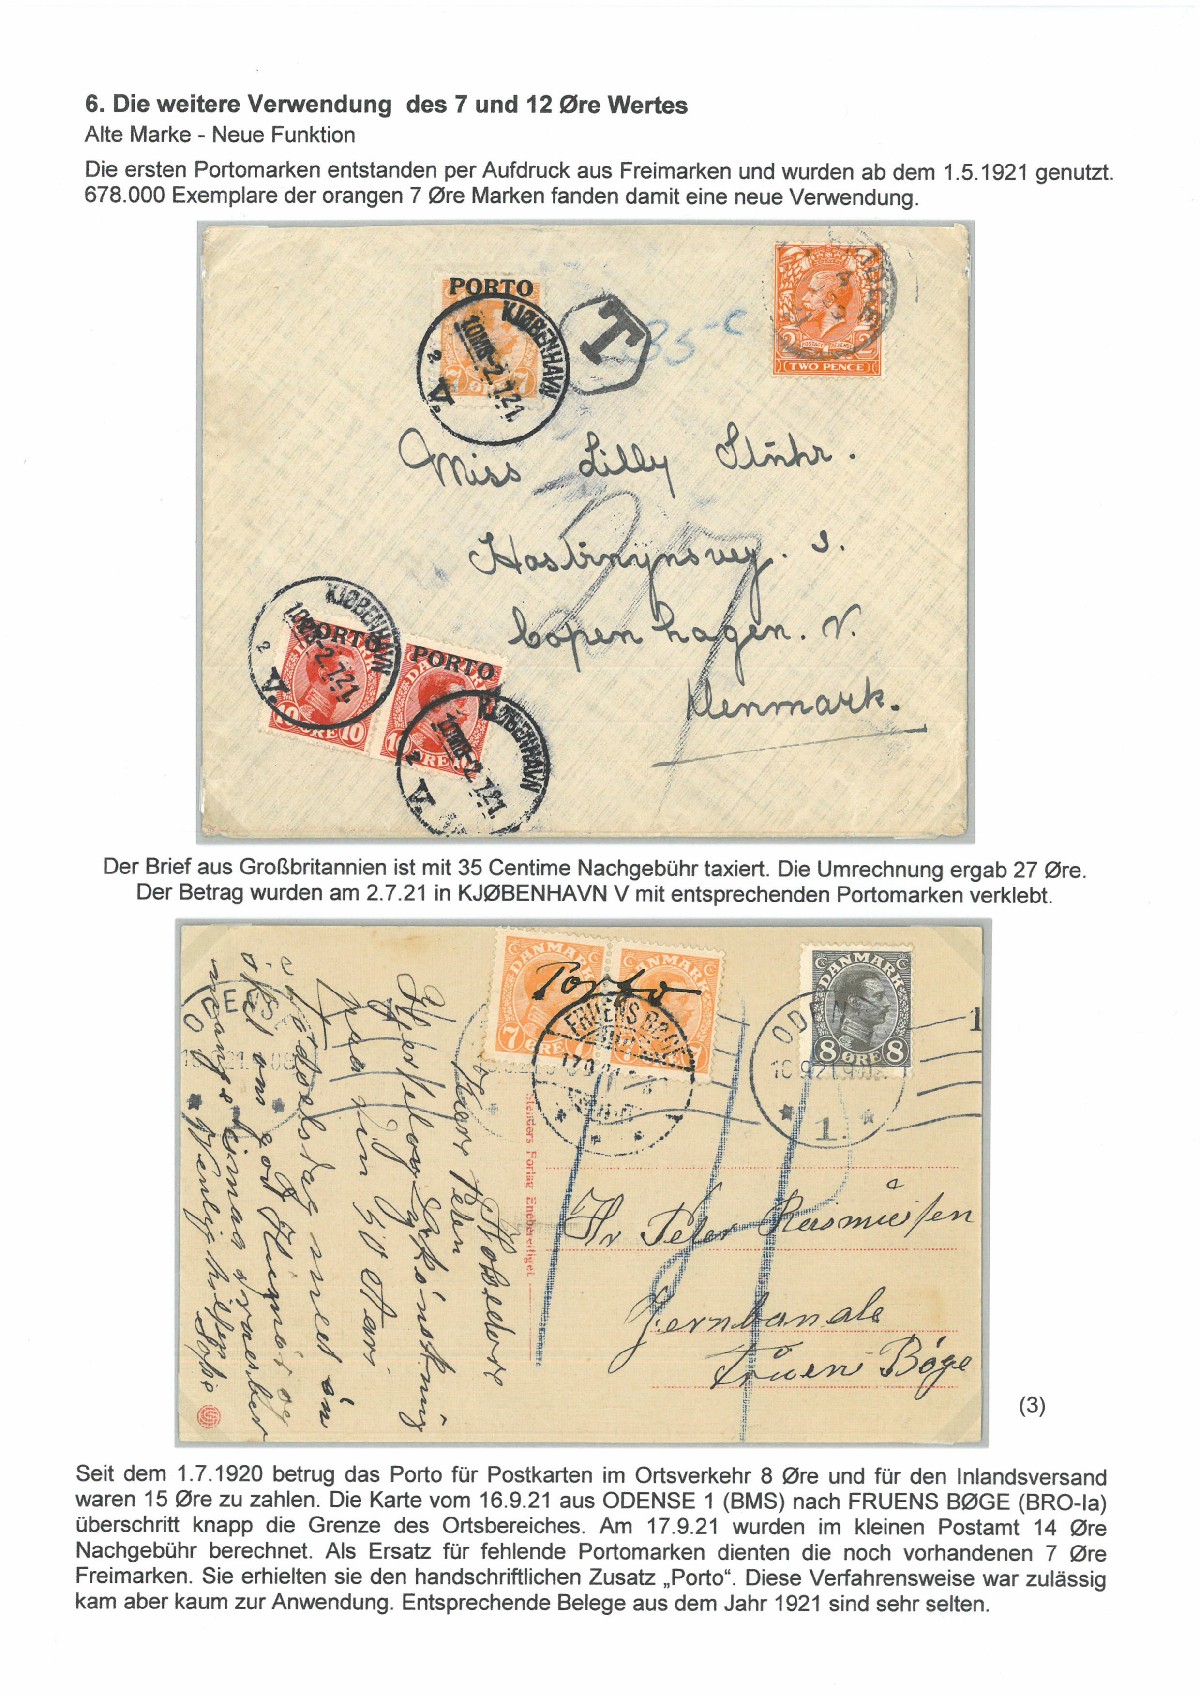 6. Die weitere Verwendung des 7 und 12 Øre Wertes
Alte Marke - Neue Funktion
Die ersten Portomarken entstanden per Aufdruck aus Freimarken und wurden ab dem 1.5.1921 genutzt.
678.000 Exemplare der orangen 7 Øre Marken fanden damit eine neue Verwendung.
PORTO
7 ØRE 7
KJØBENHAVN
10MD-2.7.21.
2 V.
T
35-c
2 2
TWO PENCE
Miss Lilly Stühr.
27
Copenhagen. V.
Denmark.
KJØBENHAVN
2.7.21.
2 V.
PORTO
10 ØRE 10
PORTO
DANMARK
10 ØRE
KJØBENHAVN
10MD-2.7.21.
2 V.
Der Brief aus Großbritannien ist mit 35 Centime Nachgebühr taxiert. Die Umrechnung ergab 27 Øre.
Der Betrag wurden am 2.7.21 in KJØBENHAVN V mit entsprechenden Portomarken verklebt.
DANMARK
7 ØRE
DANMARK
7
Porto
FRUENS BØGE
17.9.21
DANMARK
8 ØRE 8
ODENSE
16.9.21.9
1.
14
Stenders Forlag Eneberettiget
Kjære Peter
Hr Peter Rasmussen
Jernbanale
Fruen Bøge
(3)
Seit dem 1.7.1920 betrug das Porto für Postkarten im Ortsverkehr 8 Øre und für den Inlandsversand
waren 15 Øre zu zahlen. Die Karte vom 16.9.21 aus ODENSE 1 (BMS) nach FRUENS BØGE (BRO-Ia)
überschritt knapp die Grenze des Ortsbereiches. Am 17.9.21 wurden im kleinen Postamt 14 Øre
Nachgebühr berechnet. Als Ersatz für fehlende Portomarken dienten die noch vorhandenen 7 Øre
Freimarken. Sie erhielten sie den handschriftlichen Zusatz „Porto“. Diese Verfahrensweise war zulässig
kam aber kaum zur Anwendung. Entsprechende Belege aus dem Jahr 1921 sind sehr selten.